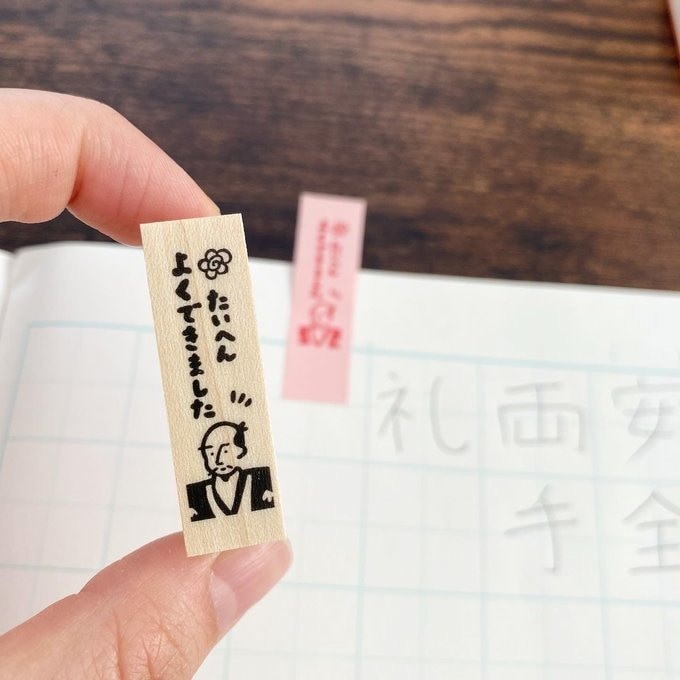 たいへん
よくできました
安両礼
全手